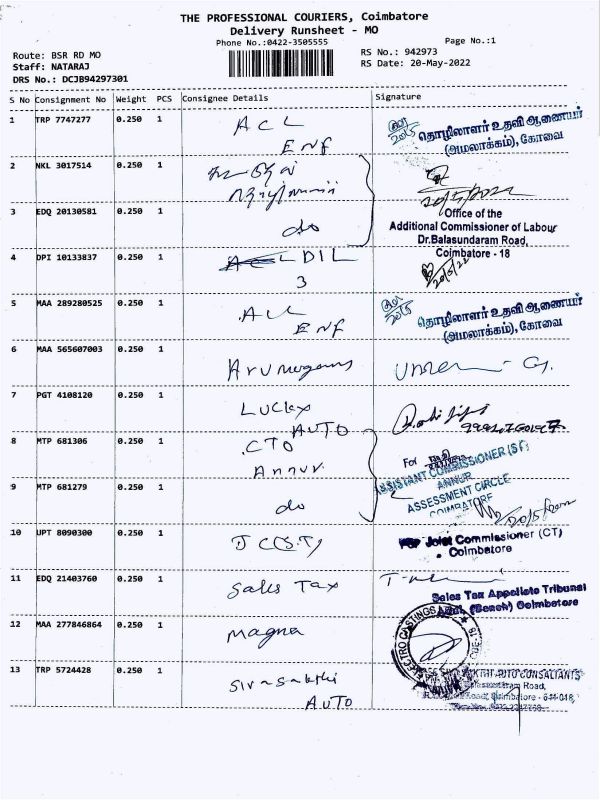 THE PROFESSIONAL COURIERS, Coimbatore
Delivery Runsheet - MO
Phone No.:0422-3505555
Page No.:1
Route: BSR RD MO
RS No.: 942973
Staff: NATARAJ
RS Date: 20-May-2022
DRS No.: DCJB94297301
S No Consignment No Weight PCS Consignee Details Signature
1 TRP 7747277 0.250 1 ACL
ENF
தொழிலாளர் உதவி ஆணையர்
(அமலாக்கம்), கோவை
2 NKL 3017514 0.250 1
3 EDQ 20130581 0.250 1 do
Office of the
Additional Commissioner of Labour
Dr.Balasundaram Road,
Coimbatore - 18
4 DPI 10133837 0.250 1 LDIL
3
20/5/22
5 MAA 289280525 0.250 1 ACL
ENF
தொழிலாளர் உதவி ஆணையர்
(அமலாக்கம்), கோவை
6 MAA 565607003 0.250 1 Arumugam
7 PGT 4108120 0.250 1 Lucky
AUTO
8 MTP 681306 0.250 1 CTO
Annur.
For
ASSISTANT COMMISSIONER (ST)
ANNUR
ASSESSMENT CIRCLE
COIMBATORE
9 MTP 681279 0.250 1 do
10 UPT 8090300 0.250 1 JC(S.T)
Joint Commissioner (CT)
Coimbatore
11 EDQ 21403760 0.250 1 Sales Tax
Sales Tax Appellate Tribunal
(Bench) Coimbatore
12 MAA 277846864 0.250 1 Magna
ELECTRO CASTINGS
13 TRP 5724428 0.250 1 Siva Sakthi
AUTO
AUTO CONSULTANTS
Road,
Road, Coimbatore - 641 018